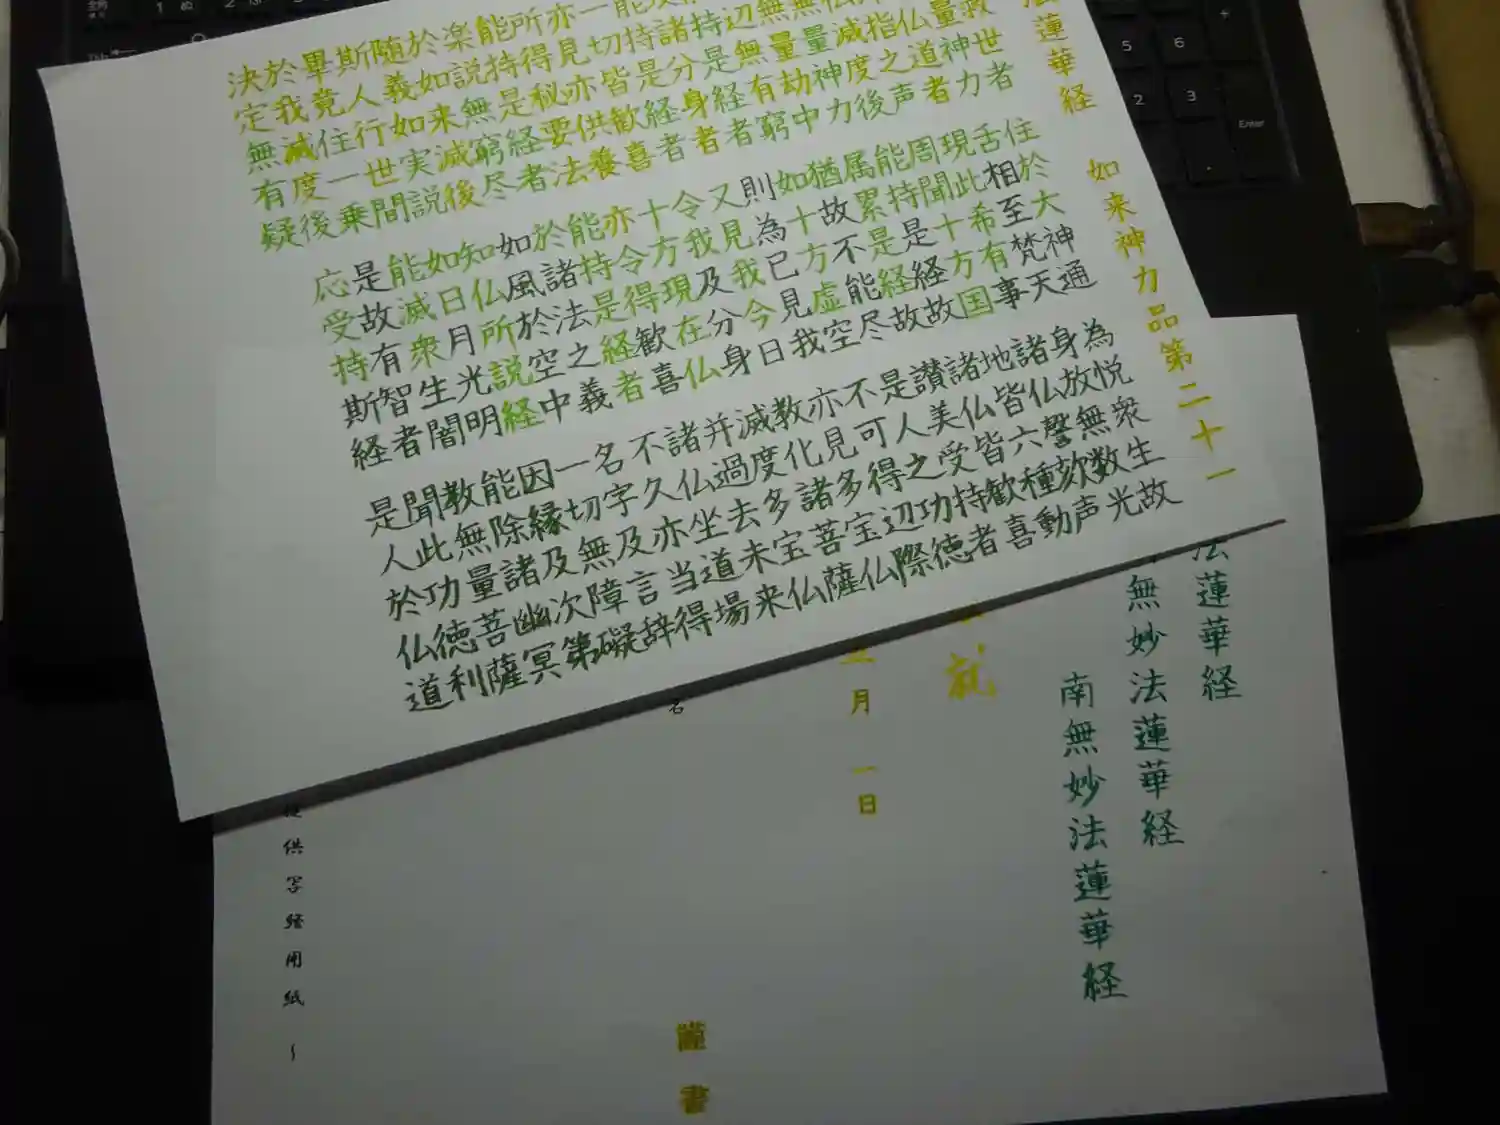 法蓮華経 如来神力品第二十一
救世者 住於大神通 為悦衆生故
量神力 舌相至梵天 身放無数光
仏道者 現此希有事 諸仏謦欬声
指之声 周聞十方国 地皆六種動
仏滅度後 能持是経故 諸仏皆歓喜
無量神力 属累是経故 讃美受持者
無量劫中 猶故不能尽 是人之功徳
辺無有窮 如十方虚空 不可得辺際
持是経者 則為已見我 亦見多宝仏
諸分身者 又見我今日 教化諸菩薩
能持是経者 令我及分身 滅度多宝仏
一切皆歓喜 十方現在仏 并過去未来
亦見亦供養 亦令得歓喜 諸仏坐道場
所得秘要法 能持是経者 不久亦当得
能持是経者 於諸法之義 名字及言辞
楽説無窮尽 如風於空中 一切無障礙
於如来滅後 知仏所説経 因縁及次第
随義如実説 如日月光明 能除諸幽冥
斯人行世間 能滅衆生闇 教無量菩薩
畢竟住一乗 是故有智者 聞此功徳利
於我滅度後 応受持斯経 是人於仏道
決定無有疑
法蓮華経
無妙法蓮華経
南無妙法蓮華経
就
月一日
名
謹書
供写経用紙～
5 6
2 3
Enter